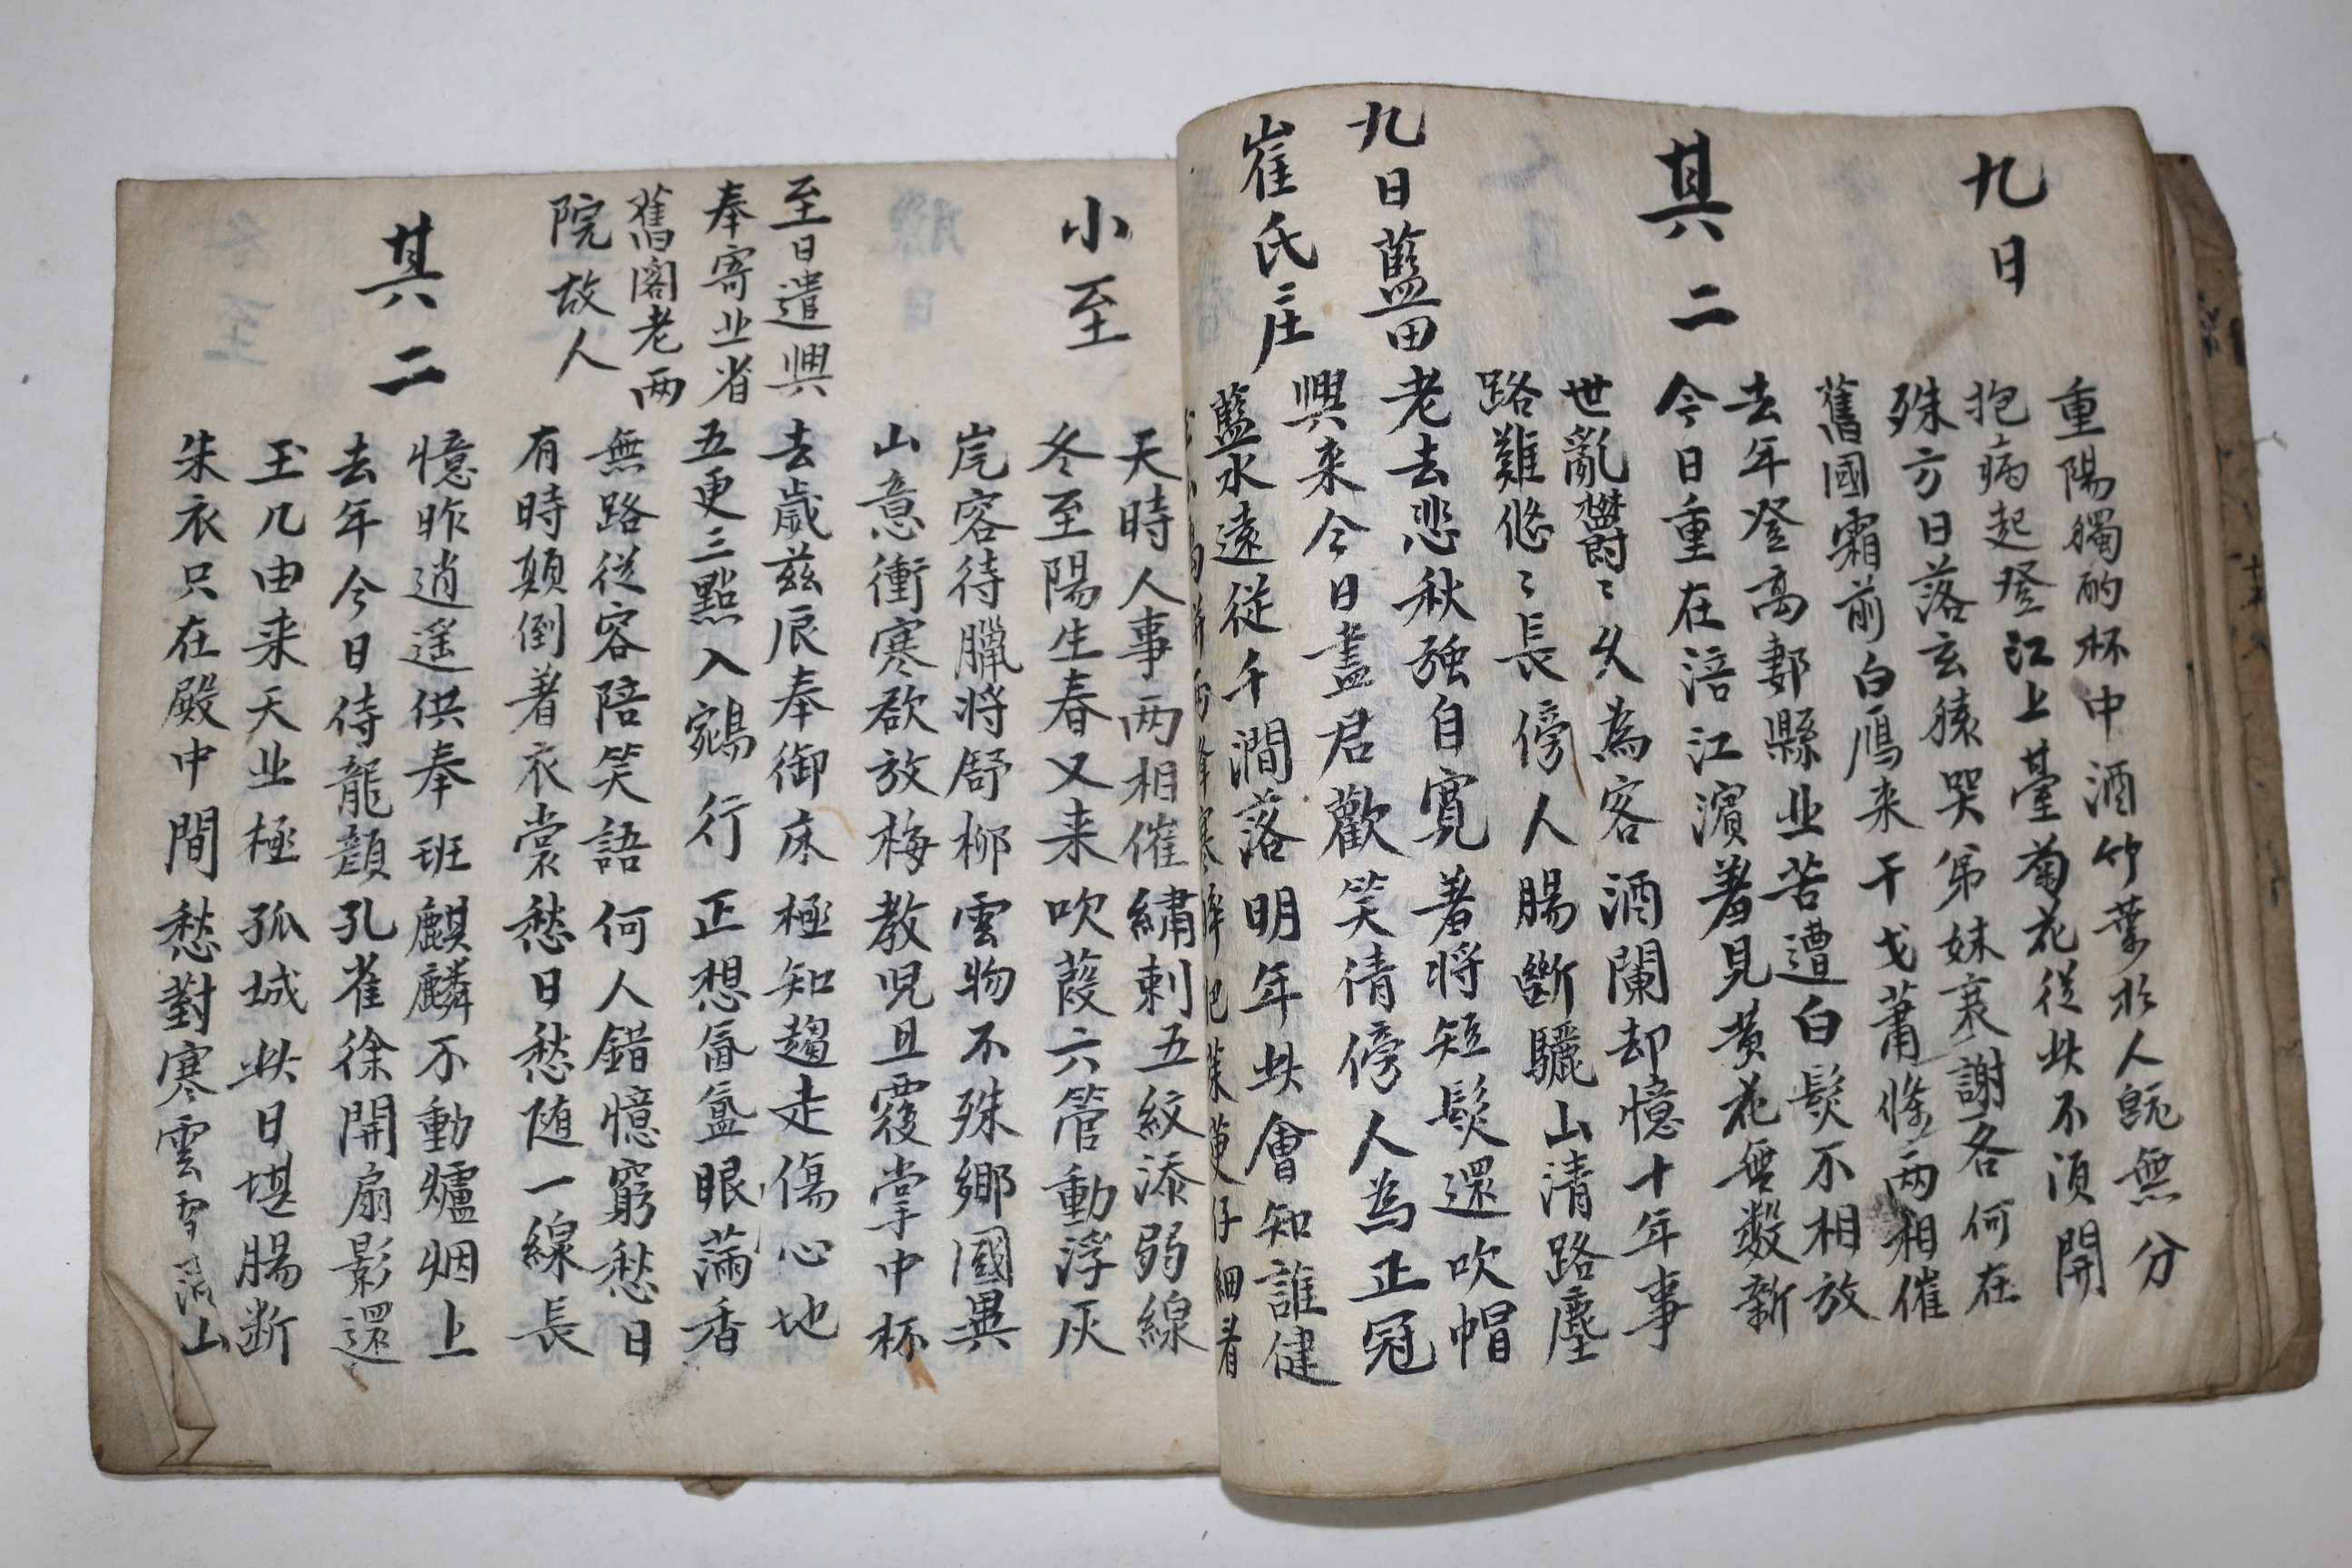 九日
重陽獨酌杯中酒竹葉於人既無分
抱病起登江上臺菊花從此不須開
殊方日落玄猿哭弟妹衰謝各何在
舊國霜前白鴈来干戈蕭條两相催
其二
去年登高郪縣北苦遭白髮不相放
今日重在涪江濱羞見黄花無数新
世亂欝〻久為客酒闌却憶十年事
路難悠〻長傍人腸斷驪山清路塵
九日藍田
崔氏庄
老去悲秋强自寛羞将短髮還吹帽
興来今日盡君歡笑倩傍人為正冠
藍水遠從千澗落明年此會知誰健
小至
天時人事两相催繡刺五紋添弱線
冬至陽生春又来吹葭六管動浮灰
岸容待臘将舒柳雲物不殊鄉國異
山意衝寒欲放梅教児且覆掌中杯
至日遣興
奉寄北省
舊閣老两
院故人
去歲玆辰奉御床極知趨走傷心地
五更三點入鵷行正想氤氳眼满香
無路從容陪笑語何人錯憶窮愁日
有時顛倒著衣裳愁日愁随一線長
其二
憶昨逍遥供奉班麒麟不動爐烟上
去年今日侍龍顔孔雀徐開扇影還
玉几由来天北極孤城此日堪腸断
朱衣只在殿中間愁對寒雲雪满山